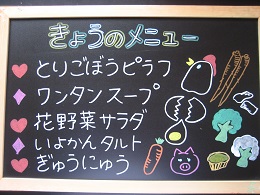 きょうのメニュー
とりごぼうピラフ
ワンタンスープ
花野菜サラダ
いよかんタルト
ぎゅうにゅう